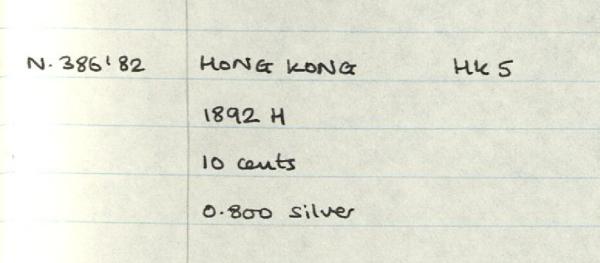 N. 386'82 HONG KONG HK 5
1892 H
10 cents
0.800 silver